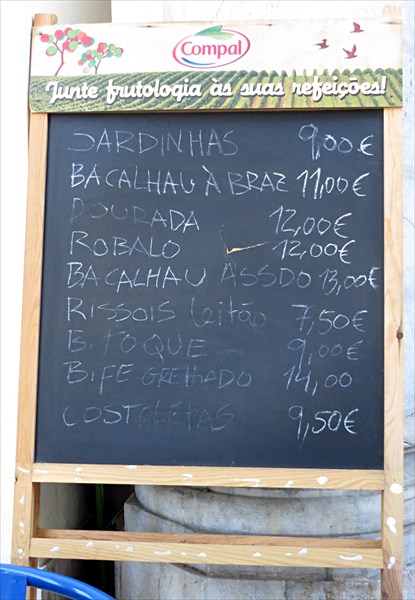 Compal
Junte frutologia às suas refeições!
SARDINHAS 9,00€
BACALHAU À BRAZ 11,00€
DOURADA 12,00€
ROBALO 12,00€
BACALHAU ASSDO 13,00€
RISSOIS leitão 7,50€
B. TOQUE 9,00€
BIFE GRELHADO 14,00
COSTELETAS 9,50€